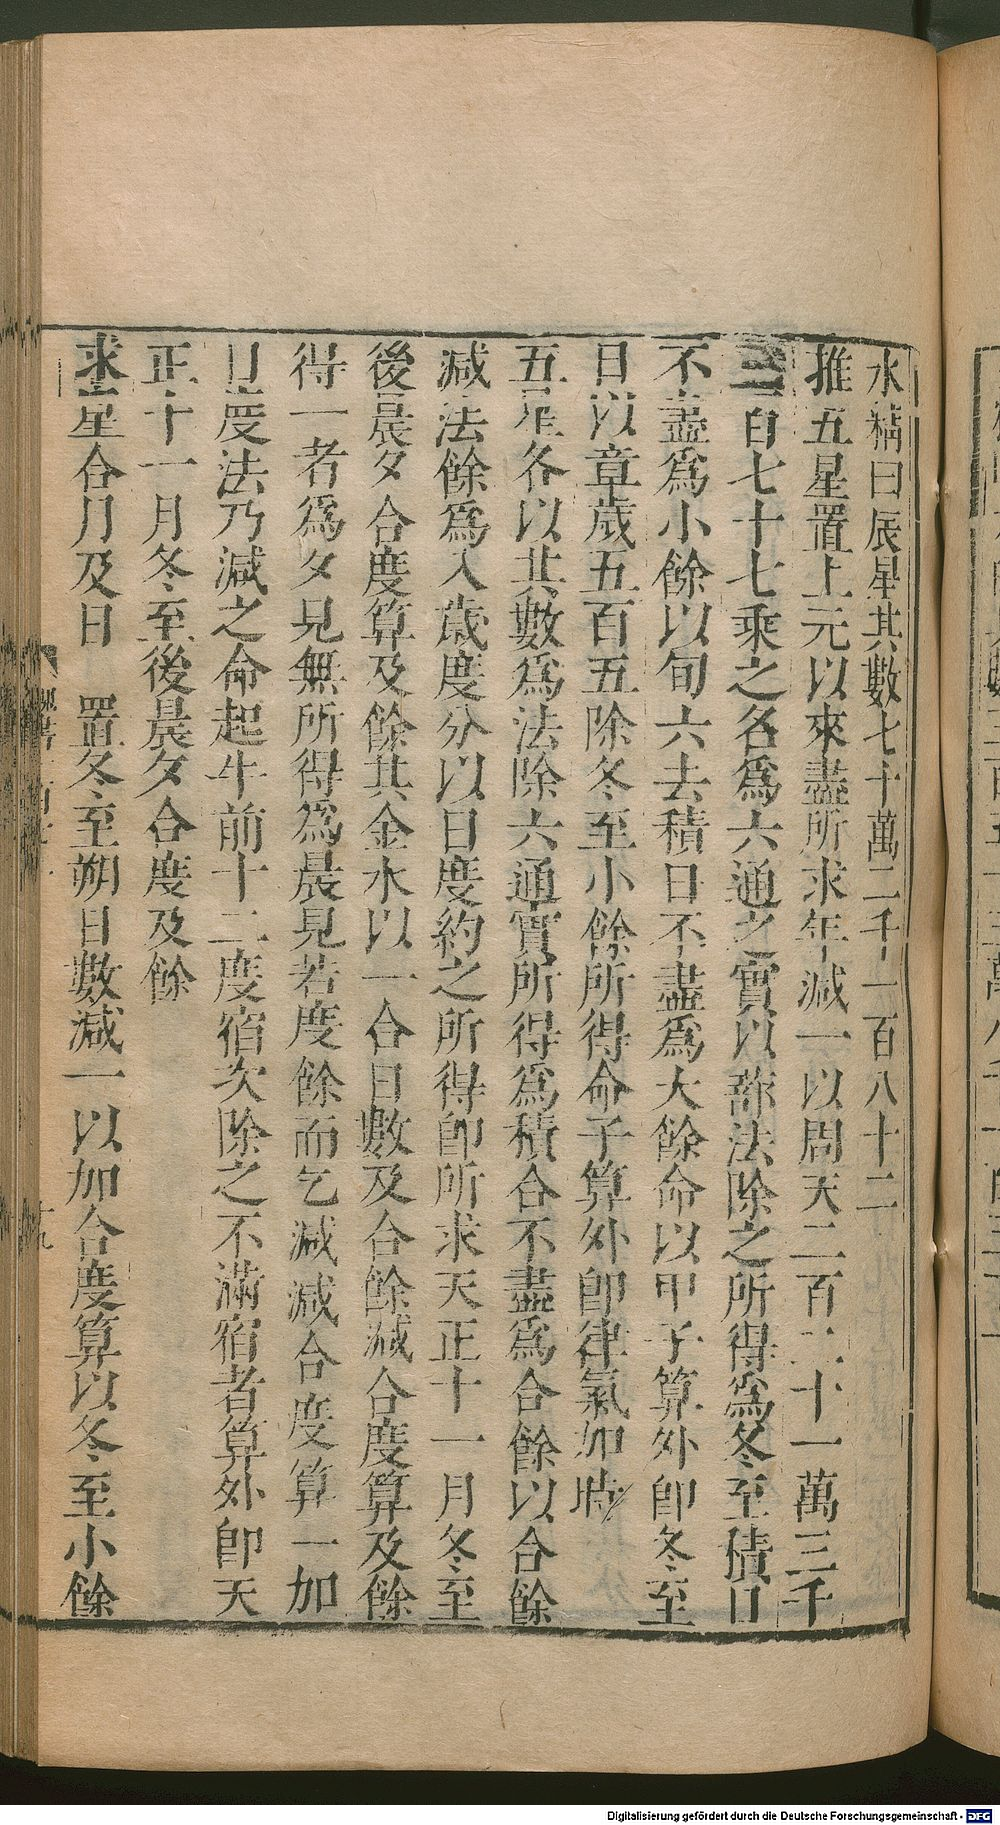 水精曰辰星其數七千萬二千一百八十二
推五星置上元以來盡所求年減一以周天二百二十一萬三千
三百七十七乘之名爲六通之實以蔀法除之所得爲冬至積日
不盡爲小餘以旬六去積日不盡爲大餘命以甲子算外卽冬至
日以章歲五百五除冬至小餘所得命子算外卽律氣加時
五星各以其數爲法除六通實所得爲積合不盡爲合餘以合餘
減法餘爲入歲度分以日度約之所得卽所求天正十一月冬至
後晨夕合度算及餘其金水以一合日數及合餘減合度算及餘
得一者爲夕見無所得爲晨見若度餘而乞減減合度算一加
日度法乃減之命起牛前十二度宿次除之不滿宿者算外卽天
正十一月冬至後晨夕合度及餘
求星合月及日 置冬至朔日數減一以加合度算以冬至小餘
十九
Digitalisierung gefördert durch die Deutsche Forschungsgemeinschaft - DFG